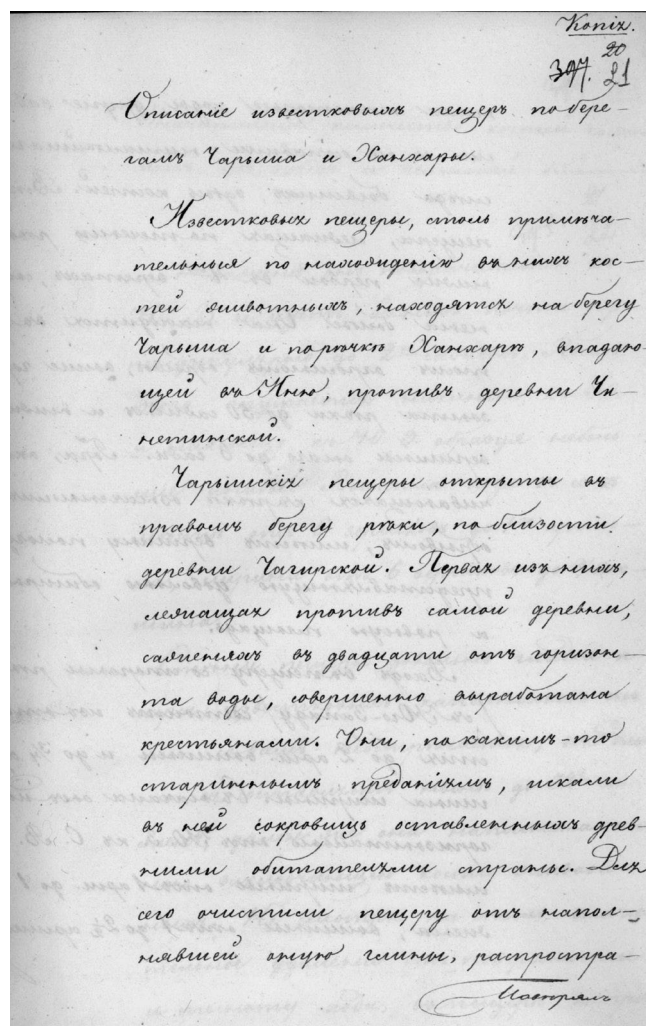 Копія.
20
21
Описаніе известковыхъ пещеръ по бере-
гамъ Чарыша и Ханхары.
Известковыя пещеры, столь примѣча-
тельныя по нахожденію въ нихъ кос-
тей животныхъ, находятся на берегу
Чарыша и по рѣчкѣ Ханхарѣ, впадаю-
щей въ Иню, противъ деревни Чи-
нетинской.
Чарышскія пещеры открыты въ
правомъ берегу рѣки, по близости
деревни Чагирской. Первая изъ нихъ,
лежащая противъ самой деревни,
саженяхъ въ двадцати отъ горизон-
та воды, совершенно выработана
крестьянами. Они, по какимъ-то
стариннымъ преданіямъ, искали
въ ней сокровищъ оставленныхъ древ-
ними обитателями страны. Для
сего очистили пещеру отъ напол-
нявшей оную глины, распростра-